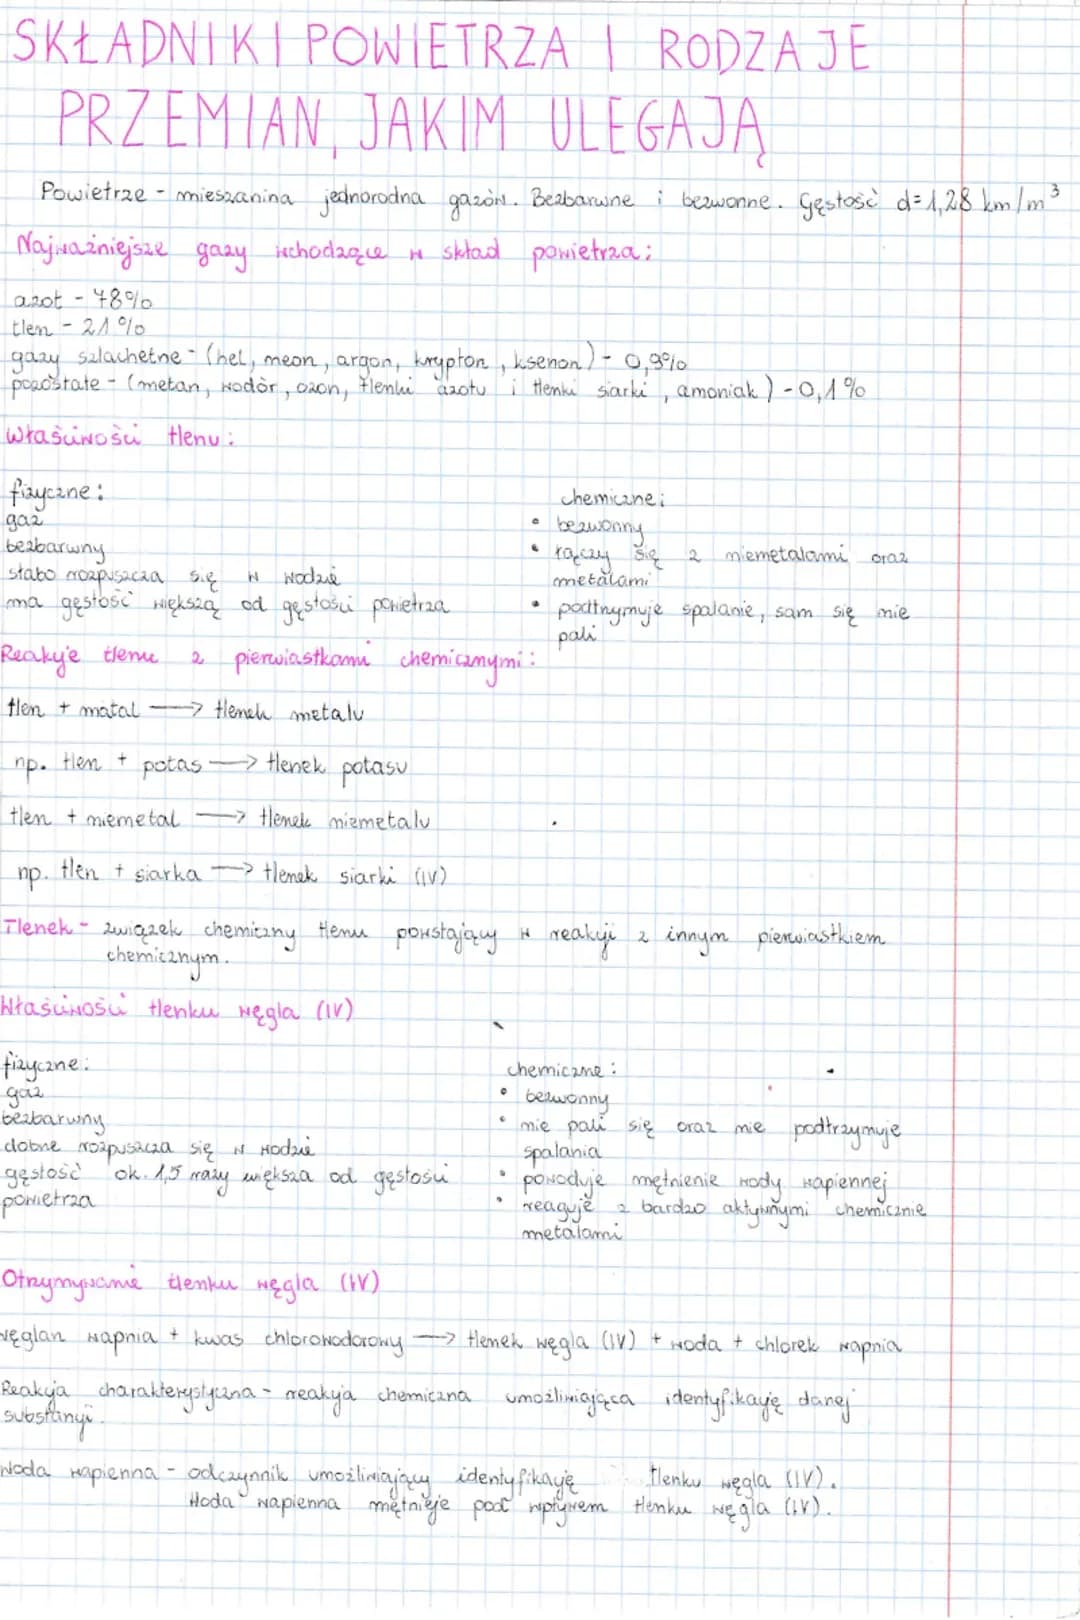 SKŁADNIKI POWIETRZA I RODZAJE
PRZEMIAN, JAKIM ULEGAJĄ
Powietrze - mieszanina jednorodna gazów. Bezbarwne i bezwonne. Gęstość d=1,28 km/m³
Najważniejsze gazy wchodzące w skład powietrza:
azot - 78%
tlen - 21%
gazy szlachetne - (hel, neon, argon, krypton, ksenon) - 0,9%
pozostałe - (metan, wodór, ozon, tlenki azotu i tlenki siarki, amoniak) - 0,1%
Właściwości tlenu:
fizyczne:
gaz
bezbarwny
słabo rozpuszcza się w wodzie
ma gęstość większą od gęstości powietrza
chemiczne:
• bezwonny
• łączy się z niemetalami oraz
metalami
• podtrymuje spalanie, sam się nie
pali
Reakcje tlenu z pierwiastkami chemicznymi:
tlen + matal → tlenek metalu
np. tlen + potas → tlenek potasu
tlen + niemetal → tlenek niemetalu
np. tlen + siarka → tlenek siarki (IV)
Tlenek - związek chemiczny tlenu powstający w reakcji z innym pierwiastkiem
chemicznym.
Właściwości tlenku węgla (IV)
fizyczne:
gaz
bezbarwny
dobrze rozpuszcza się w wodzie
gęstość ok. 1,5 razy większa od gęstości
powietrza
chemiczne:
• bezwonny
• nie pali się oraz nie podtrzymuje
spalania
• powoduje mętnienie wody wapiennej
• reaguje z bardzo aktywnymi chemicznie
metalami
Otrzymywanie tlenku węgla (IV)
węglan wapnia + kwas chlorowodorowy → tlenek węgla (IV) + woda + chlorek wapnia
Reakcja charakterystyczna - reakcja chemiczna umożliwiająca identyfikację danej
substancji.
Woda wapienna - odczynnik umożliwiający identyfikację tlenku węgla (IV).
Woda wapienna mętnieje pod wpływem tlenku węgla (IV).